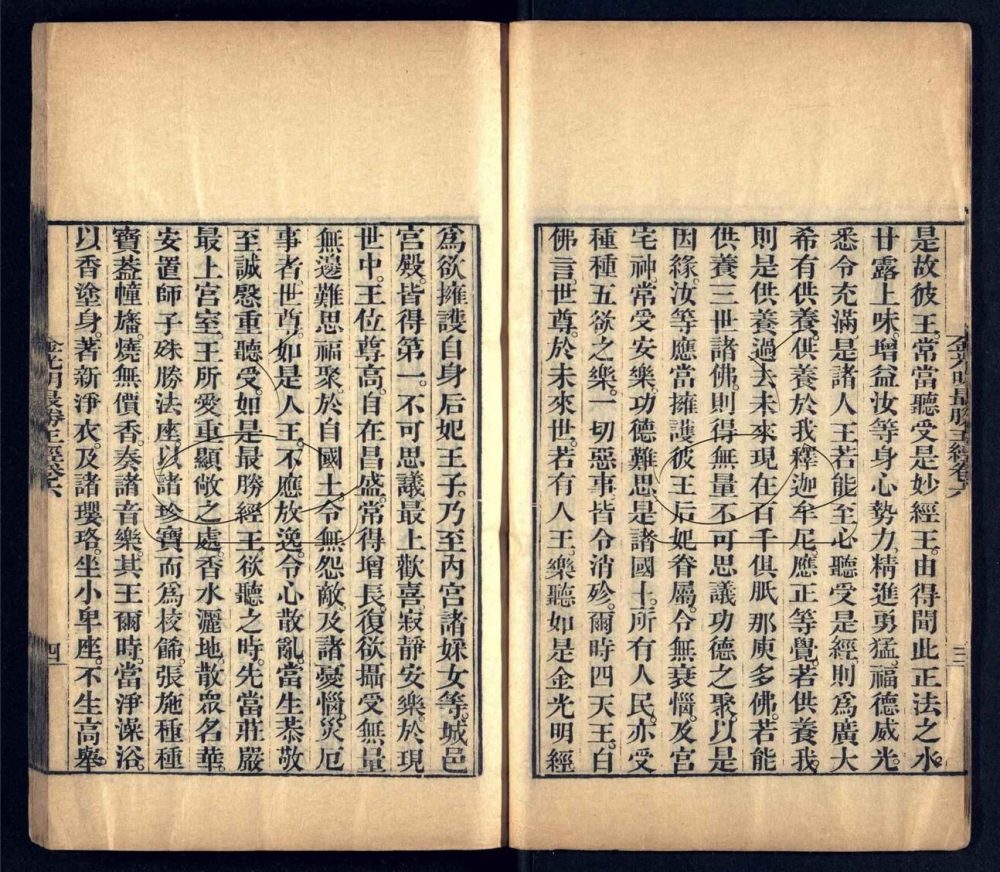 金光明最勝王經卷六
三
是故彼王。常當聽受是妙經王。由得聞此正法之水。
甘露上味。增益汝等身心勢力。精進勇猛。福德威光。
悉令充滿。是諸人王。若能至心聽受是經。則爲廣大
希有供養。供養於我釋迦牟尼。應正等覺。若供養我。
則是供養過去未來現在百千俱胝那庾多佛。若能
供養三世諸佛。則得無量不可思議功德之聚。以是
因緣。汝等應當擁護彼王后妃眷屬。令無衰惱。及宮
宅神。常受安樂。功德難思。是諸國土。所有人民。亦受
種種五欲之樂。一切惡事。皆令消殄。爾時四天王。白
佛言。世尊。於未來世。若有人王。樂聽如是金光明經
爲欲擁護自身后妃王子。乃至內宮諸婇女等。城邑
宮殿。皆得第一。不可思議最上歡喜寂靜安樂。於現
世中。王位尊高。自在昌盛。常得增長。復欲攝受無量
無邊難思福聚。於自國土。令無怨敵。及諸憂惱。災厄
事者。世尊。如是人王。不應放逸。令心散亂。當生恭敬
至誠慇重聽受。如是最勝經王。欲聽之時。先當莊嚴
最上宮室。王所愛重顯敞之處。香水灑地。散衆名華。
安置師子殊勝法座。以諸珍寶而爲校飾。張施種種
寶蓋幢旛。燒無價香。奏諸音樂。其王爾時。當淨澡浴。
以香塗身。著新淨衣。及諸瓔珞。坐小卑座。不生高舉。
金光明最勝王經卷六
四